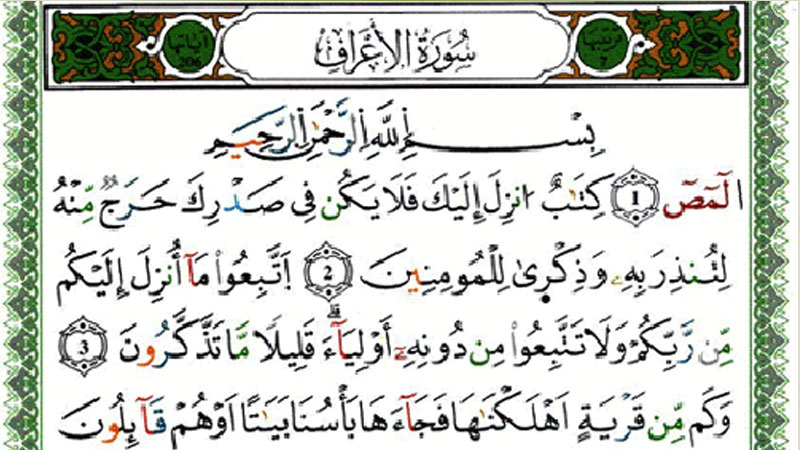 اياتها
206
سُورَةُ الْأَعْرَافِ
ترتيبها
7
بِسْمِ اِ۬للَّهِ اِ۬لرَّحْمَٰنِ اِ۬لرَّحِيمِ
اَلَٓمِّٓصَٓ 1 كِتَٰبٌ ا۟نزِلَ إِلَيْكَ فَلَا يَكُن فِي صَدْرِكَ حَرَجٞ مِّنْهُ
لِتُنذِرَ بِهِۦ وَذِكْر۪ىٰ لِلْمُومِنِينَ 2 اَتَّبِعُواْ مَآ أُنزِلَ إِلَيْكُم
مِّن رَّبِّكُمْ وَلَا تَتَّبِعُواْ مِن دُونِهِۦٓ أَوْلِيَآءَ قَلِيلًا مَّا تَذَّكَّرُونَ 3
وَكَم مِّن قَرْيَةٍ اَهْلَكْنَٰهَا فَجَآءَهَا بَأْسُنَا بَيَٰتًا اَوْ هُمْ قَآئِلُونَ